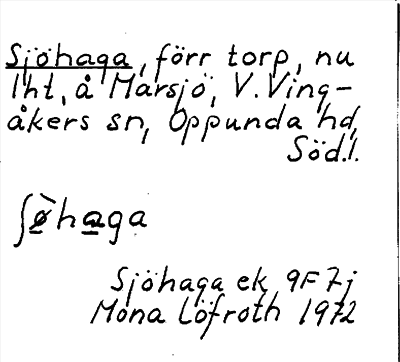 Sjöhaga, förr torp, nu
lht, å Marsjö, V. Ving-
åkers sn, Oppunda hd,
Söd.l.
ʃø̀haga
Sjöhaga ek 9F 7j
Mona Löfroth 1972